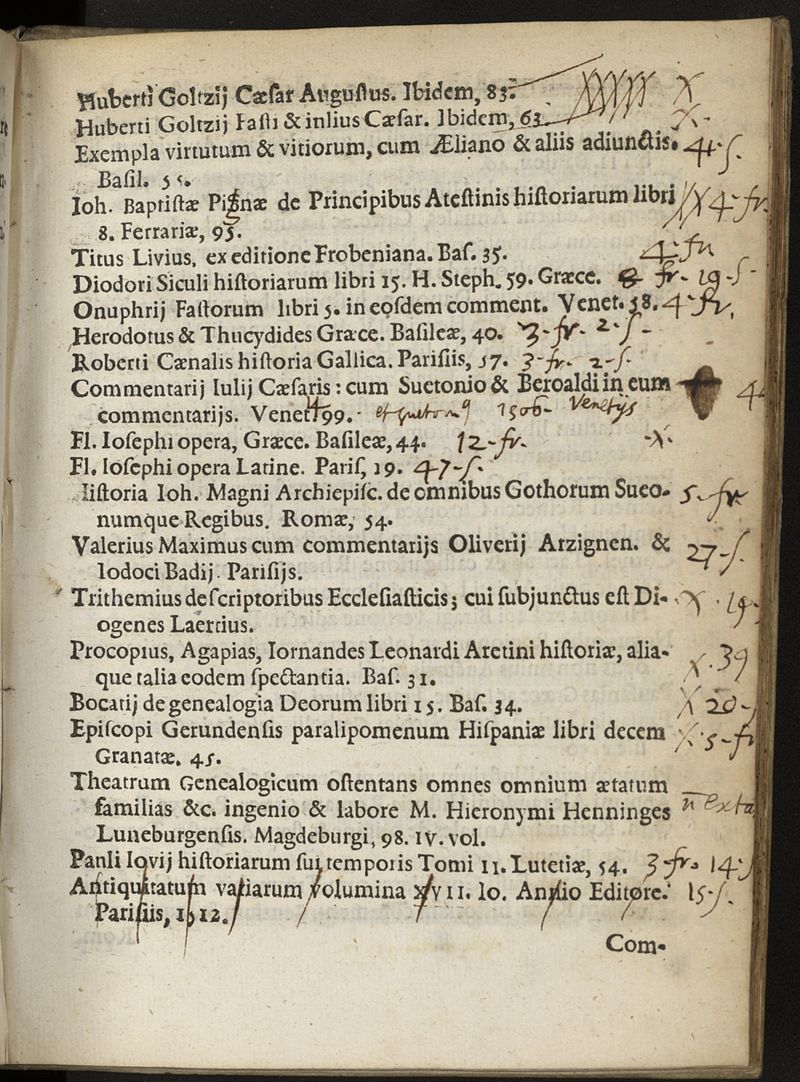 Huberti Goltzij Cæsar Augustus. Ibidem, 83. X
Huberti Goltzij Fasti & inlius Cæsar. Ibidem, 63. X
Exempla virtutum & vitiorum, cum Æliano & aliis adiunctis. 41-s.
Basil. 55.
Ioh. Baptistæ Pignæ de Principibus Atestinis historiarum libri 4-fr.
8. Ferrariæ, 95.
Titus Livius, ex editione Frobeniana. Bas. 35. 4-fr
Diodori Siculi historiarum libri 15. H. Steph. 59. Græce. 8 fr- 19-s-
Onuphrij Fastorum libri 5. in eosdem comment. Venet. 58. 4-fr.
Herodotus & Thucydides Græce. Basileæ, 40. 3-fr- 2-s-
Roberti Cænalis historia Gallica. Parisiis, 57. 3-fr- 2-s-
Commentarij Iulij Cæsaris: cum Suetonio & Beroaldi in eum 4
commentarijs. Venet. 99. 1506- Venetijs
Fl. Iosephi opera, Græce. Basileæ, 44. 12-fr. -X-
Fl. Iosephi opera Latine. Paris, 19. 47-s-
Iistoria Ioh. Magni Archiepisc. de omnibus Gothorum Sueo- 5-fr
numque Regibus. Romæ, 54.
Valerius Maximus cum commentarijs Oliverij Arzignen. & 27-s.
Iodoci Badij. Parisijs.
Trithemius de scriptoribus Ecclesiasticis; cui subjunctus est Di- X . 19-
ogenes Laertius.
Procopius, Agapias, Iornandes Leonardi Aretini historiæ, alia- X . 39
que talia eodem spectantia. Bas. 31.
Bocatij de genealogia Deorum libri 15. Bas. 34. X 20-s
Episcopi Gerundensis paralipomenum Hispaniæ libri decem X . 5-fr
Granatæ. 45.
Theatrum Genealogicum ostentans omnes omnium ætatum
familias &c. ingenio & labore M. Hieronymi Henninges
Luneburgensis. Magdeburgi, 98. IV. vol.
Pauli Iovij historiarum sui temporis Tomi 11. Lutetiæ, 54. 3-fr- 14-s
Antiquitatum variarum volumina xvii. Io. Annio Editore. 15-s.
Parisiis, 1512.
Com-